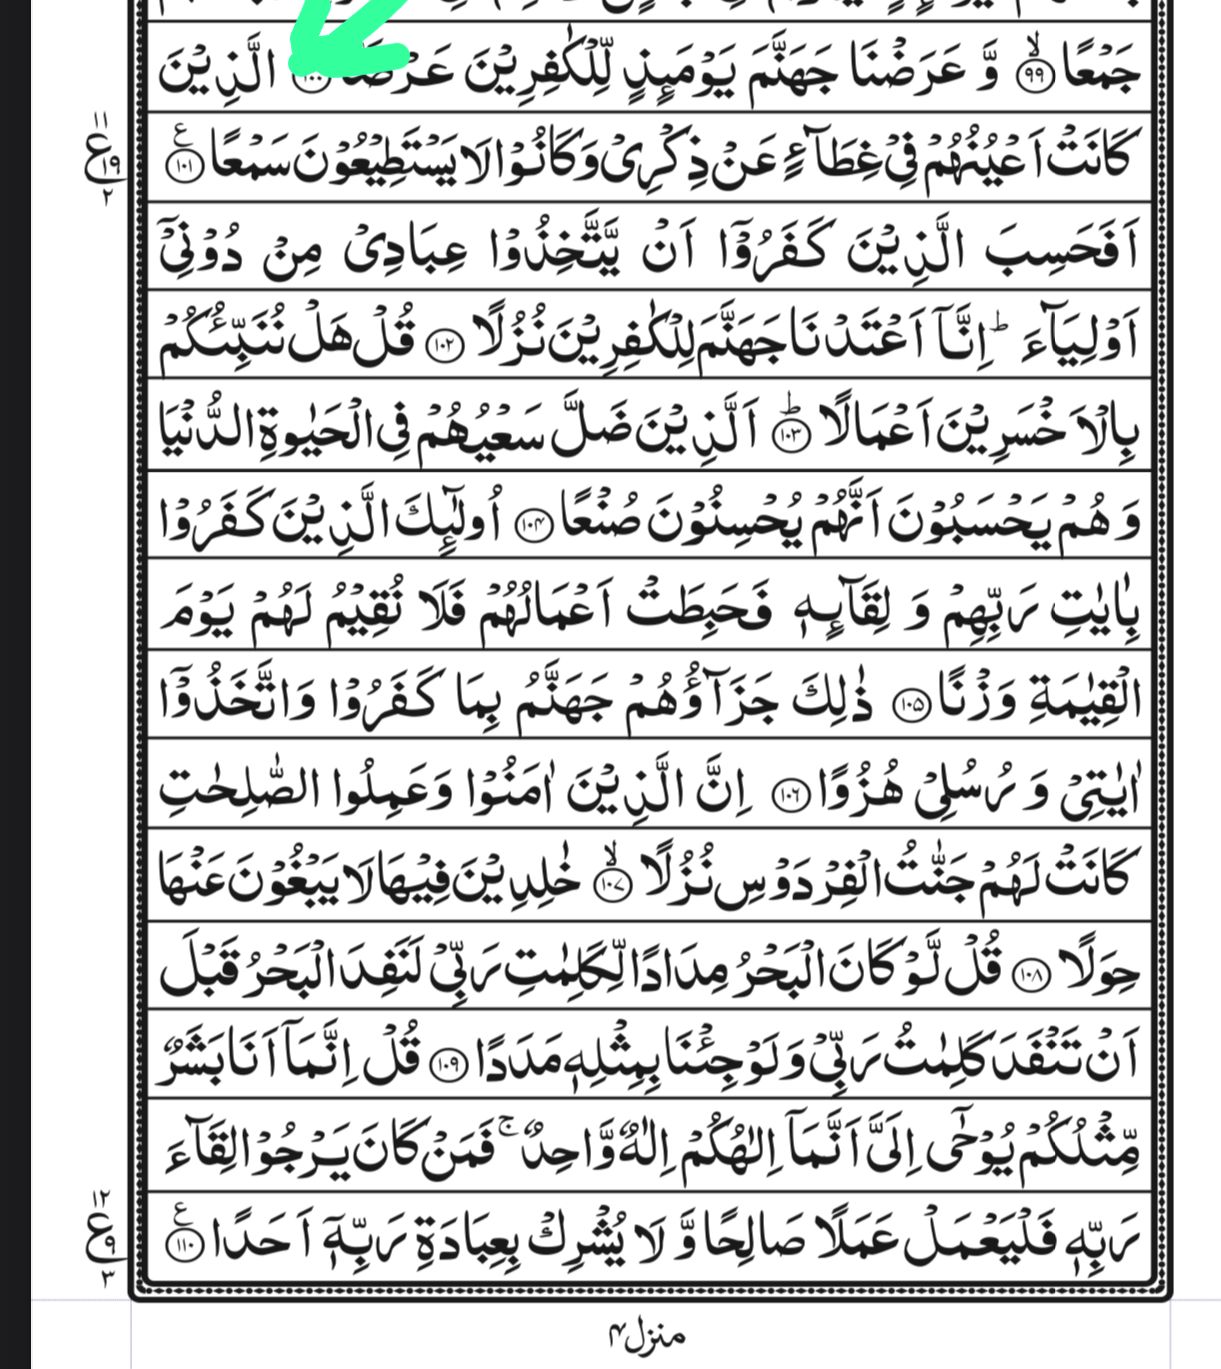 جَمْعًا ۙ﴿۹۹﴾ وَّ عَرَضْنَا جَهَنَّمَ يَوْمَىِٕذٍ لِّلْكٰفِرِيْنَ الَّذِيْنَ
كَانَتْ اَعْيُنُهُمْ فِىْ غِطَآءٍ عَنْ ذِكْرِىْ وَكَانُوْا لَا يَسْتَطِيْعُوْنَ سَمْعًا ﴿۱۰۱﴾ ع
۱۱
ع ۱۹
۲
اَفَحَسِبَ الَّذِيْنَ كَفَرُوْۤا اَنْ يَّتَّخِذُوْا عِبَادِىْ مِنْ دُوْنِىْۤ
اَوْلِيَآءَ ؕ اِنَّاۤ اَعْتَدْنَا جَهَنَّمَ لِلْكٰفِرِيْنَ نُزُلًا ﴿۱۰۲﴾ قُلْ هَلْ نُنَبِّئُكُمْ
بِالْاَخْسَرِيْنَ اَعْمَالًا ؕ﴿۱۰۳﴾ اَلَّذِيْنَ ضَلَّ سَعْيُهُمْ فِى الْحَيٰوةِ الدُّنْيَا
وَ هُمْ يَحْسَبُوْنَ اَنَّهُمْ يُحْسِنُوْنَ صُنْعًا ﴿۱۰۴﴾ اُولٰٓىِٕكَ الَّذِيْنَ كَفَرُوْا
بِاٰيٰتِ رَبِّهِمْ وَ لِقَآىِٕهٖ فَحَبِطَتْ اَعْمَالُهُمْ فَلَا نُقِيْمُ لَهُمْ يَوْمَ
الْقِيٰمَةِ وَزْنًا ﴿۱۰۵﴾ ذٰلِكَ جَزَآؤُهُمْ جَهَنَّمُ بِمَا كَفَرُوْا وَاتَّخَذُوْۤا
اٰيٰتِىْ وَ رُسُلِىْ هُزُوًا ﴿۱۰۶﴾ اِنَّ الَّذِيْنَ اٰمَنُوْا وَعَمِلُوا الصّٰلِحٰتِ
كَانَتْ لَهُمْ جَنّٰتُ الْفِرْدَوْسِ نُزُلًا ۙ﴿۱۰۷﴾ خٰلِدِيْنَ فِيْهَا لَا يَبْغُوْنَ عَنْهَا
حِوَلًا ﴿۱۰۸﴾ قُلْ لَّوْ كَانَ الْبَحْرُ مِدَادًا لِّكَلِمٰتِ رَبِّىْ لَنَفِدَ الْبَحْرُ قَبْلَ
اَنْ تَنْفَدَ كَلِمٰتُ رَبِّىْ وَلَوْ جِئْنَا بِمِثْلِهٖ مَدَدًا ﴿۱۰۹﴾ قُلْ اِنَّمَاۤ اَنَا بَشَرٌ
مِّثْلُكُمْ يُوْحٰۤى اِلَىَّ اَنَّمَاۤ اِلٰهُكُمْ اِلٰهٌ وَّاحِدٌ ۚ فَمَنْ كَانَ يَرْجُوْا لِقَآءَ
رَبِّهٖ فَلْيَعْمَلْ عَمَلًا صَالِحًا وَّ لَا يُشْرِكْ بِعِبَادَةِ رَبِّهٖۤ اَحَدًا ﴿۱۱۰﴾ ع
۱۲
ع ۹
۳
منزل ۴